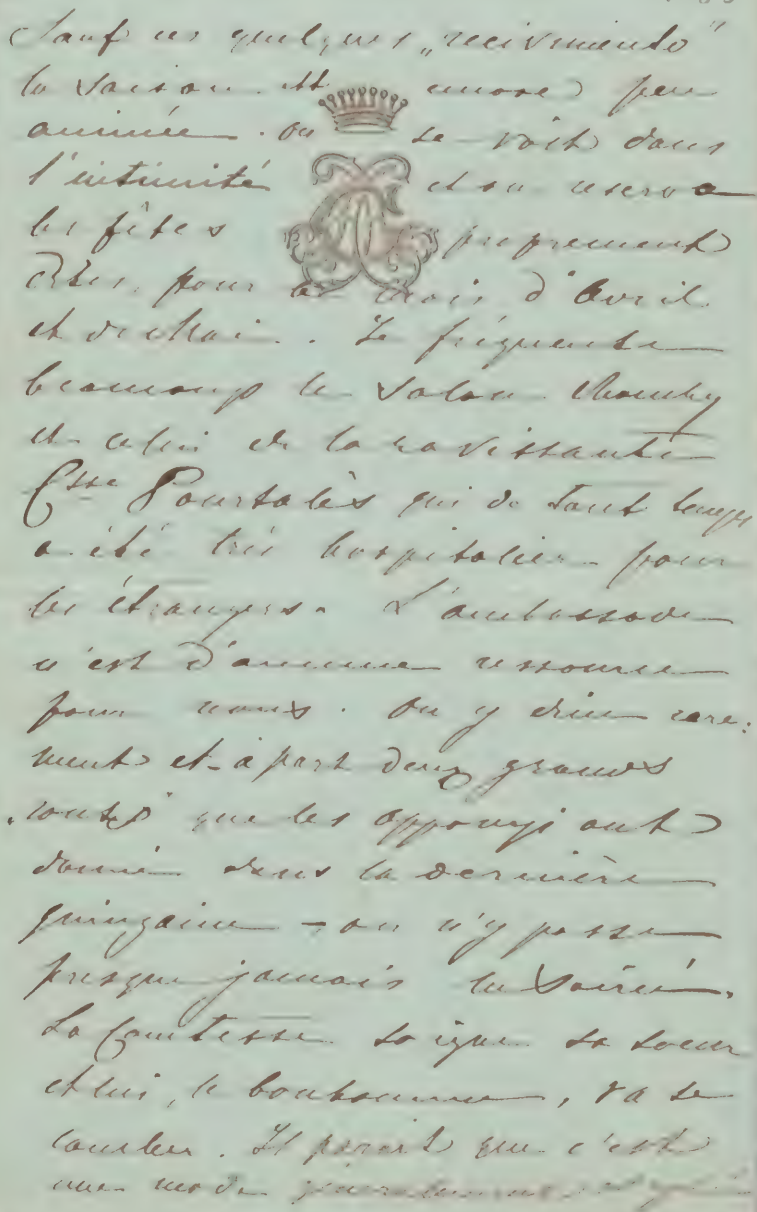 Sauf ces quelques „recivimiento"
la saison est encore peu
animée. on se voit dans
l'intimité et on reserve
les fêtes proprement
dites, pour le mois d'Avril
et de Mai. Je fréquente
beaucoup le salon
et celui de la ravissante
Csse Pourtalès qui de tout temps
a été très hospitalier pour
les étrangers. L'ambassade
n'est d'aucune ressource
pour nous. On y dine rare:
ment et à part deux grands
„routs" que les Apponyi ont
donné dans la dernière
quinzaine – on n'y passe
presque jamais la soirée.
La Comtesse soigne sa soeur
et lui, le bonhomme, va se
coucher. Il parait que c'est
une mode